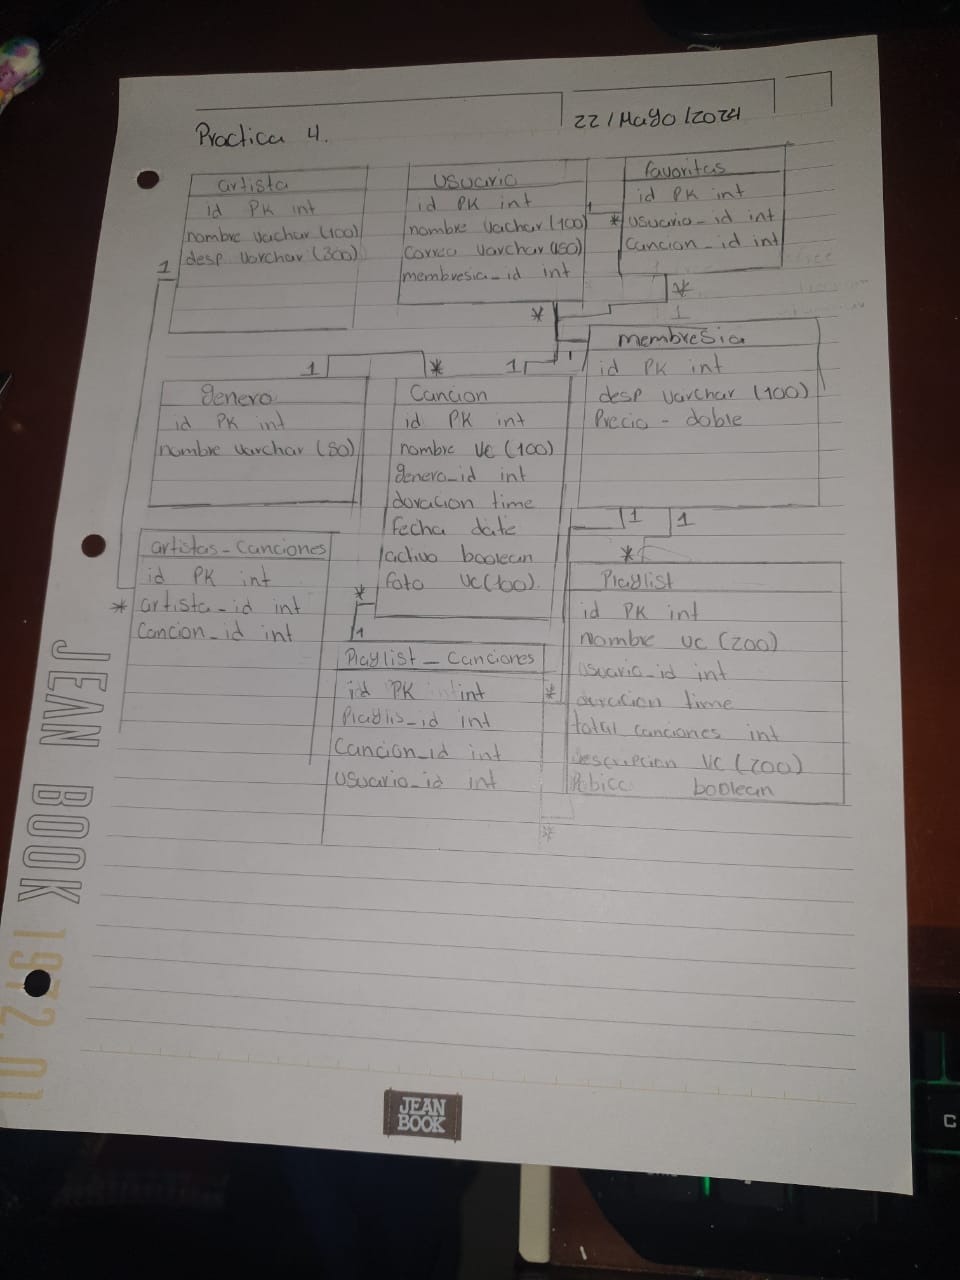 Practica 4.
22/Mayo/2024
artista
id PK int
nombre vachar (100)
desp varchar (300)
1
usuario
id PK int
nombre vachar (100)
Correo varchar (150)
membresia_id int
*
favoritas
id PK int
1
* usuario_id int
Cancion_id int
*
1
membresia
id PK int
desp varchar (100)
Precio - doble
1 1
1 *
1
genero
id PK int
nombre varchar (50)
Cancion
id PK int
nombre VC (100)
genero_id int
duracion time
fecha date
activo boolean
foto VC (100)
*
1
artistas_Canciones
id PK int
* artista_id int
Cancion_id int
Playlist_Canciones
id PK int
Playlis_id int
Cancion_id int
usuario_id int
*
*
*
Playlist
id PK int
nombre VC (200)
usuario_id int
duracion time
total canciones int
descripcion VC (200)
boolean
JEAN BOOK 1972.01
JEAN
BOOK
C